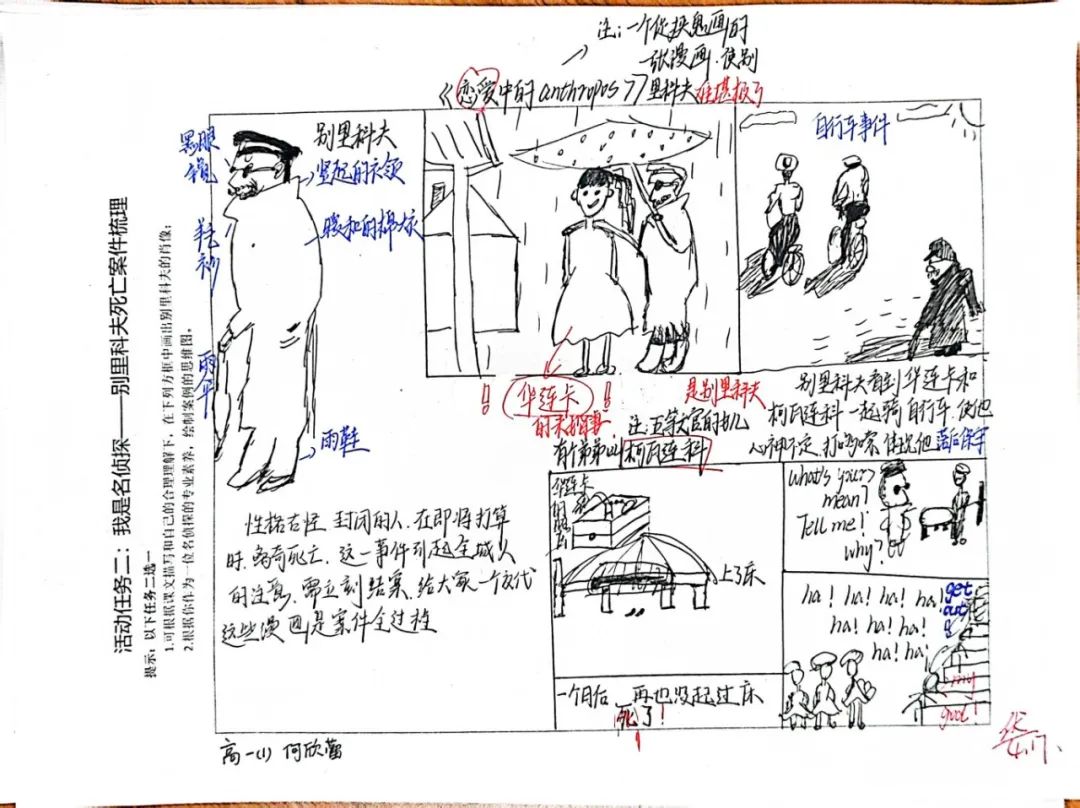 活动任务二：我是名侦探——别里科夫死亡案件梳理
提示：以下任务二选一
1.可根据课文描写和自己的合理理解下，在下列方框中画出别里科夫的肖像；
2.根据你作为一位名侦探的专业素养，绘制案例的思维图。
注：一个促狭鬼画的
一张漫画，使别
里科夫难堪极了
《恋爱中的anthropos》
黑眼镜
别里科夫
竖起的衣领
暖和的棉大衣
雨伞
雨鞋
性格古怪、封闭的人，在即将打算
时，离奇死亡，这一事件引起全城人
的注意，需立刻结案，给大家一个交代
这些漫画是案件全过程
!! 华连卡 !!
是别里科夫
的未婚妻
注：五等文官的女儿
有个弟弟叫柯瓦连科
自行车事件
别里科夫看到华连卡和
柯瓦连科一起骑自行车，使他
心神不定，打哆嗦，体现他落后保守
what's your
mean?
Tell me!
why?
华连卡
上了床
ha! ha! ha! ha!
ha! ha! ha!
ha! ha!
get
out
my
一个月后，再也没起过床
死了!
高一(1) 何欣蕾
4.17.